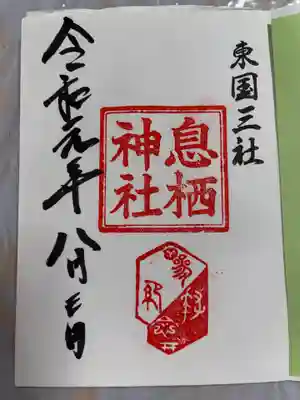 東国三社
息栖
神社
令和元年八月三日